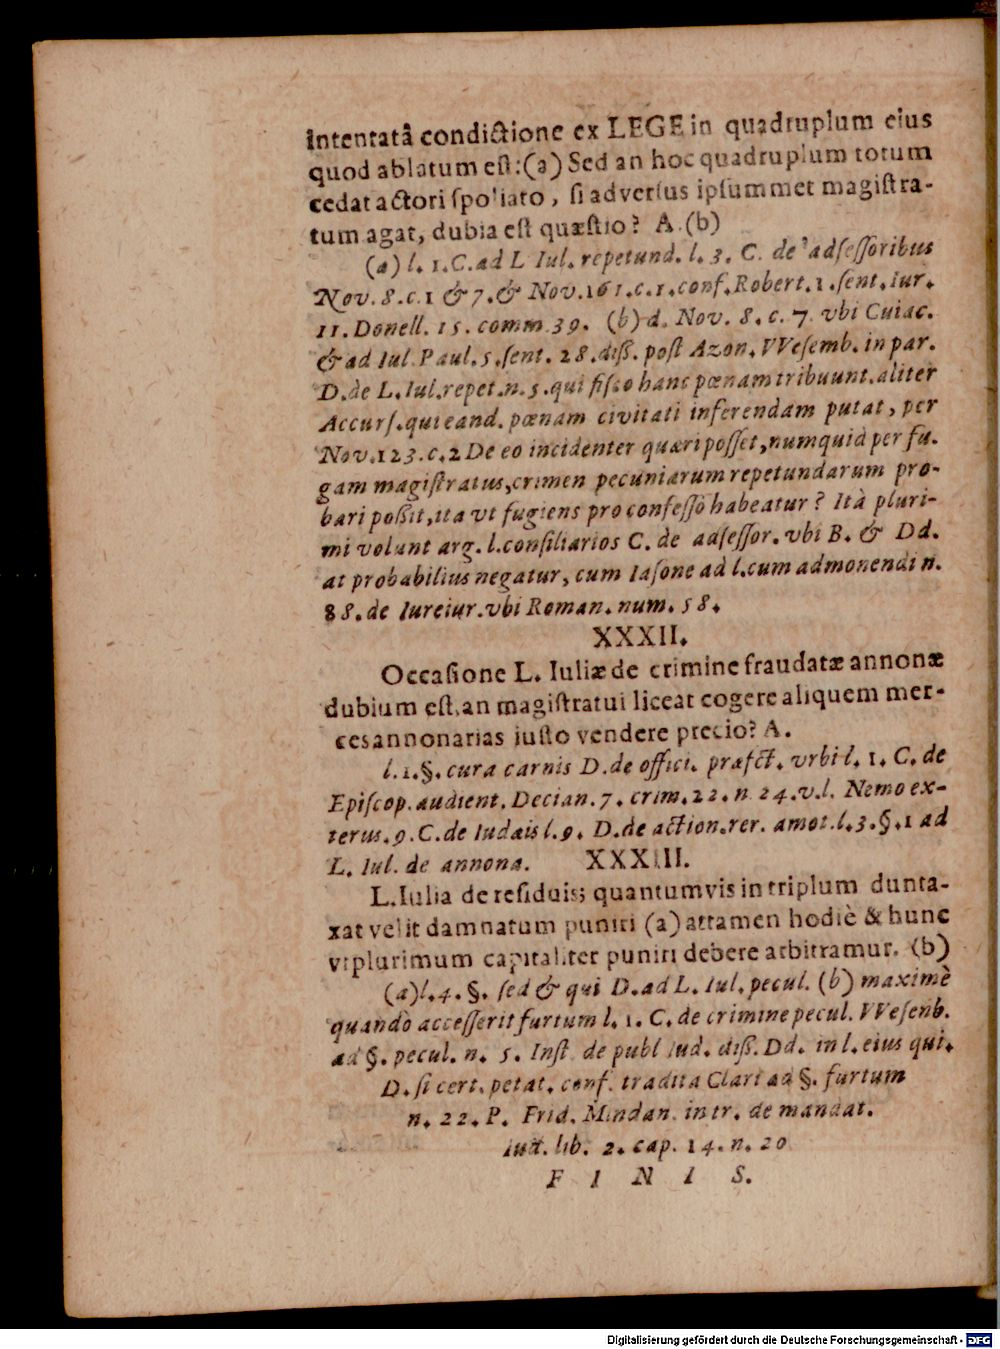 intentatâ condictione ex LEGE in quadruplum eius
quod ablatum est:(a) Sed an hoc quadruplum totum
cedat actori spoliato, si adversus ipsummet magistra-
tum agat, dubia est quæstio? A (b)
(a) l. 1.C.ad L Iul. repetund. l. 3. C. de adsessoribus
Nov. 8. c. 1 & 7. & Nov. 161. c. 1. conf. Robert. 1. sent. Iur.
11. Donell. 15. comm 39. (b) d. Nov. 8. c. 7 vbi Cuiac.
& ad Iul Paul. 5. sent. 28. diss. post Azon. VVesemb. in par.
D. de L. Iul. repet. n. 5. qui fisco hanc pœnam tribuunt. aliter
Accurs. qui eand. pœnam civitati inferendam putat, per
Nov. 123. c. 2 De eo incidenter quæri posset, numquid per fu.
gam magistratus, crimen pecuniarum repetundarum pro-
bari possit, ita vt fugiens pro confesso habeatur? Ità pluri-
mi volunt arg. l. consiliarios C. de adsessor. vbi B. & Dd.
at probabilius negatur, cum Iasone ad l. cum admonendi n.
88. de Iureiur. vbi Roman. num. 58.
XXXII.
Occasione L. Iuliæ de crimine fraudatæ annonæ
dubium est, an magistratui liceat cogere aliquem mer-
ces annonarias iusto vendere precio? A.
l. 1. §. cura carnis D. de offici. præfect. vrbi l. 1. C. de
Episcop. audient. Decian. 7. crim. 22. n 24. v. l. Nemo ex-
terus. 9. C. de Iudæis l. 9. D. de action. rer. amot. l. 3. §. 1 ad
L. Iul. de annona. XXXIII.
L. Iulia de residuis; quantumvis in triplum dunta-
xat velit damnatum puniri (a) attamen hodiè & hunc
vtplurimum capitaliter puniri debere arbitramur. (b)
(a) l. 4. §. sed & qui D. ad L. Iul. pecul. (b) maximè
quandò accesserit furtum l. 1. C. de crimine pecul. VVesenb.
ad §. pecul. n. 5. Inst de publ Iud. diss. Dd. in l. eius qui.
D. si cert. petat. conf. tradita Clari ad §. furtum
n. 22. P. Frid. Mindan. in tr. de mandat.
lib. 2. cap. 14. n. 20
F I N I S.
Digitalisierung gefördert durch die Deutsche Forschungsgemeinschaft - DFG